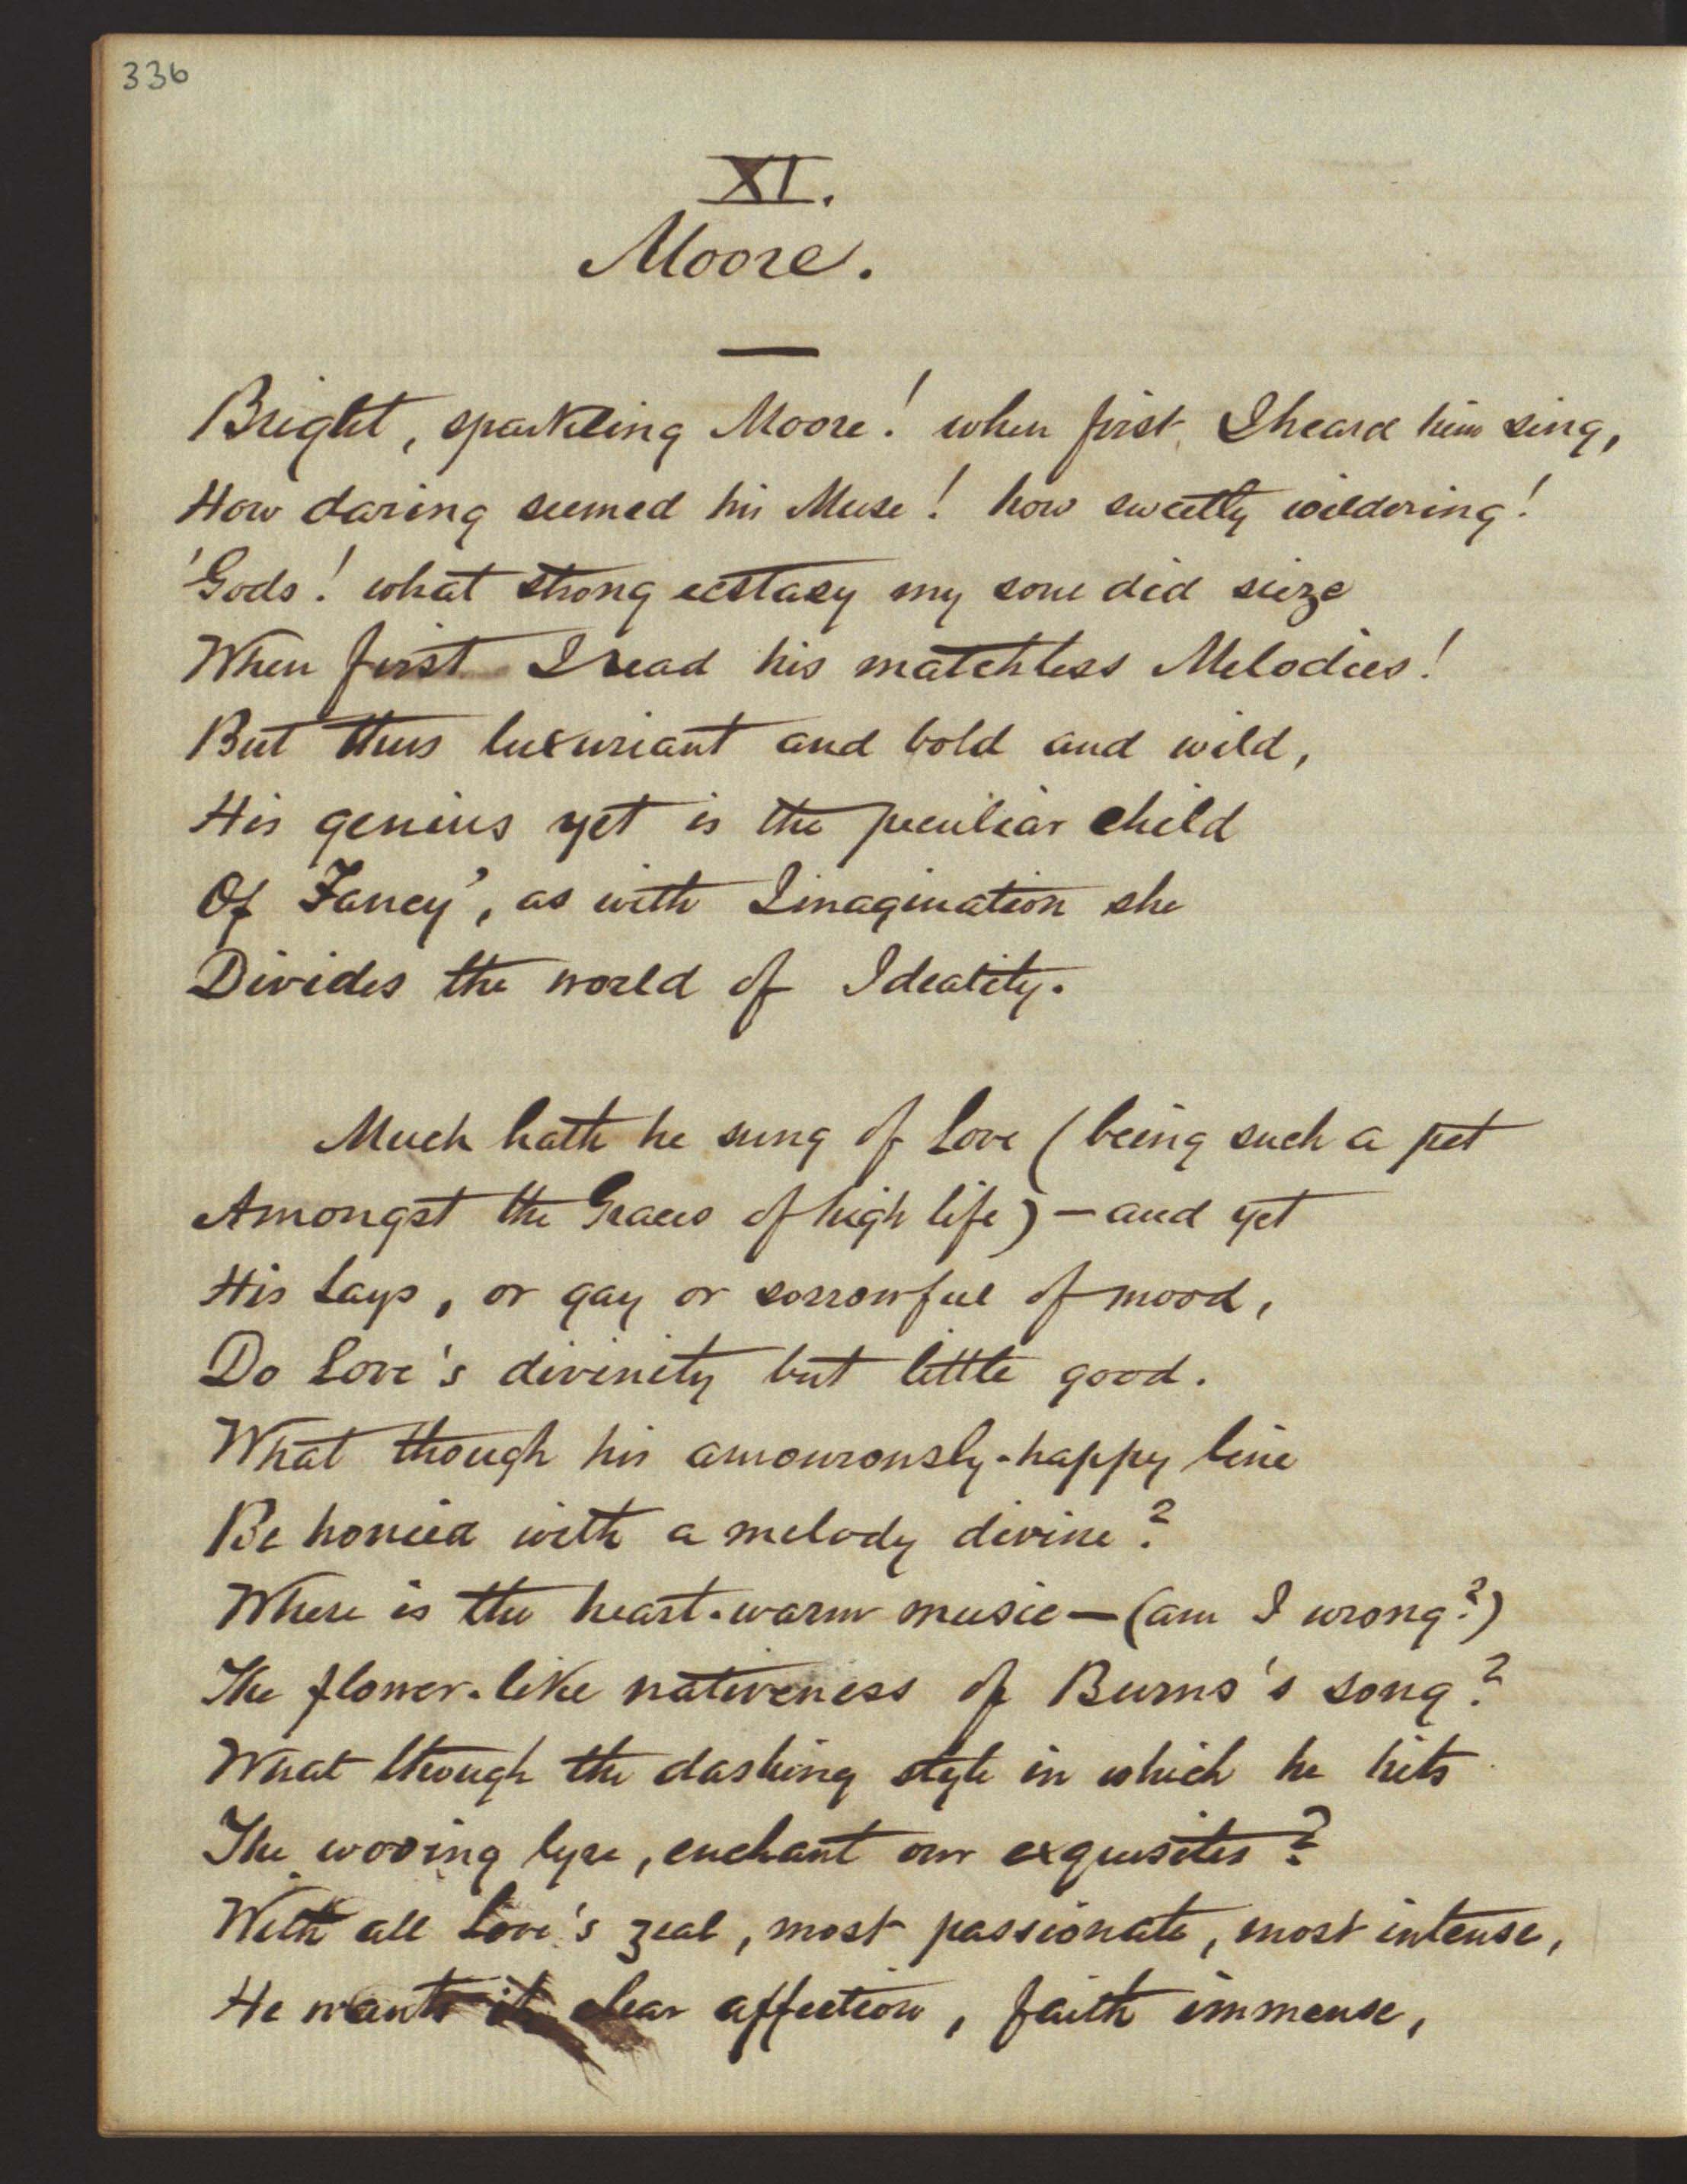 336
XI.
Moore.
Bright, sparkling Moore! when first I heard him sing,
How daring seemed his Muse! how sweetly wildering!
'Gods! what strong ecstasy my soul did seize
When first I read his matchless Melodies!
But thus luxuriant and bold and wild,
His genius yet is the peculiar child
Of Fancy', as with Imagination she
Divides the world of Ideality.
Much hath he sung of Love (being such a pet
Amongst the Graces of high life) — and yet
His Lays, or gay or sorrowful of mood,
Do Love's divinity but little good.
What though his amourously-happy line
Be honied with a melody divine?
Where is the heart-warm music — (am I wrong?)
The flower-like nativeness of Burns's song?
What though the dashing style in which he hits
The wooing lyre, enchant our exquisites?
With all Love's zeal, most passionate, most intense,
He wants its clear affection, faith immense,